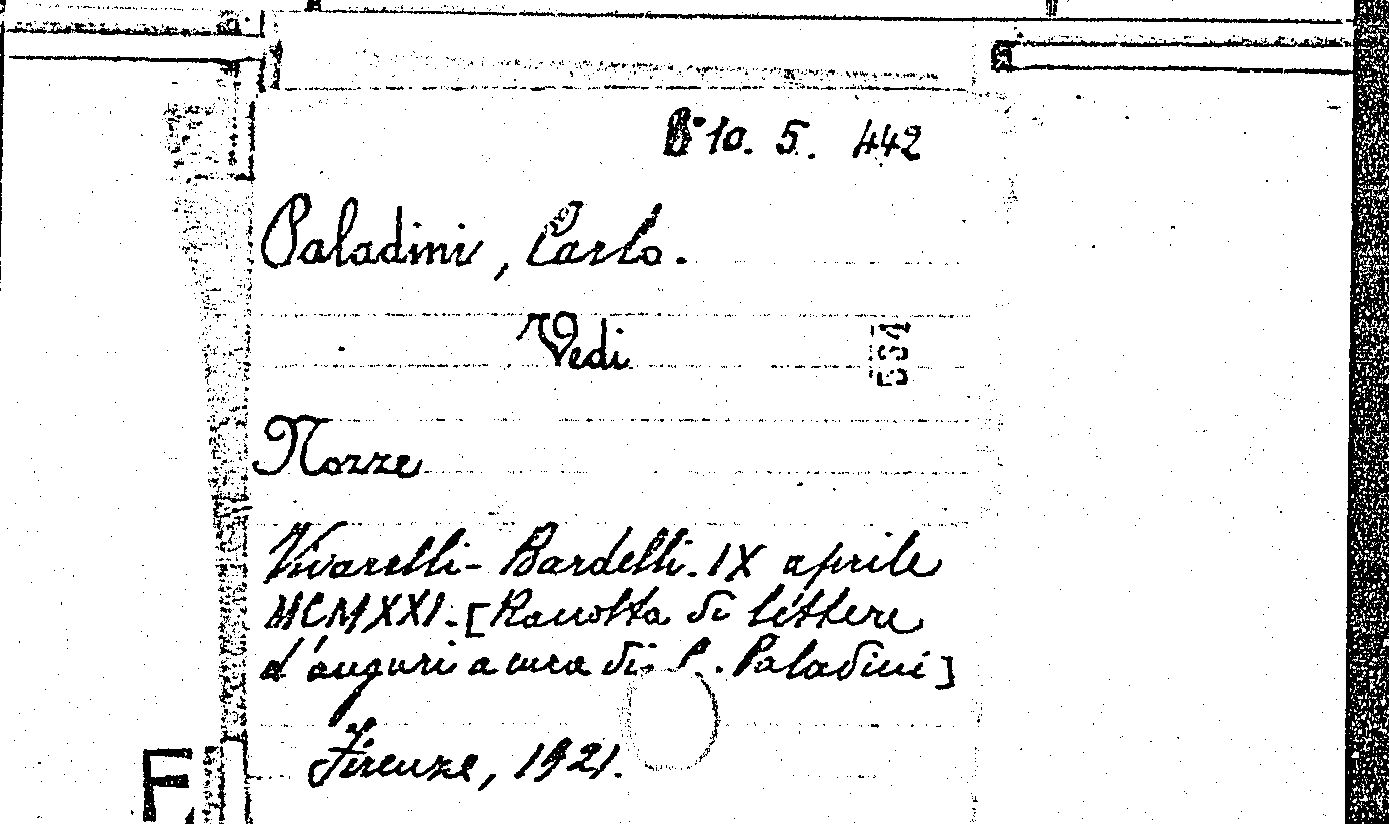 B 10. 5. 442
Paladini, Carlo.
Vedi
Nozze
Vivarelli-Bardelli. IX aprile
MCMXXI. [Raccolta di lettere
d'auguri a cura di C. Paladini]
Firenze, 1921.